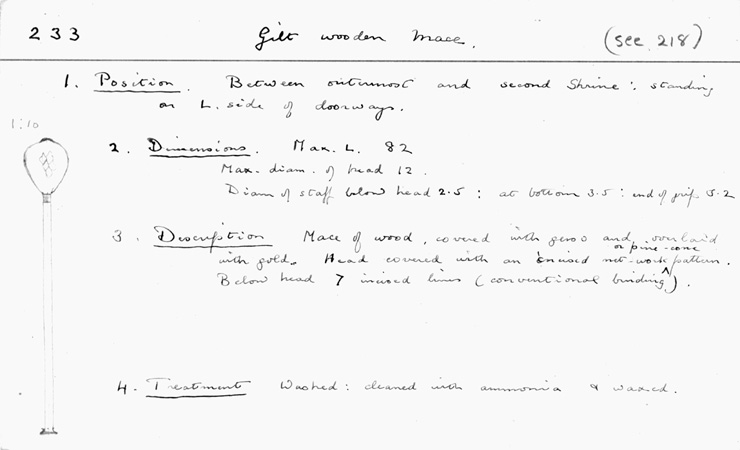 233 Gilt wooden Mace. (see 218)
1. Position. Between outermost and second Shrine: standing
on L. side of doorways.
1:10
2. Dimensions. Max. L. 82
Max. diam. of head 12.
Diam of staff below head 2.5 : at bottom 3.5 : end of grip 5.2
3. Description Mace of wood, covered with gesso and overlaid
or pine-cone
with gold. Head covered with an incised net-work pattern.
Below head 7 incised lines (conventional binding).
4. Treatment Washed: cleaned with ammonia & waxed.